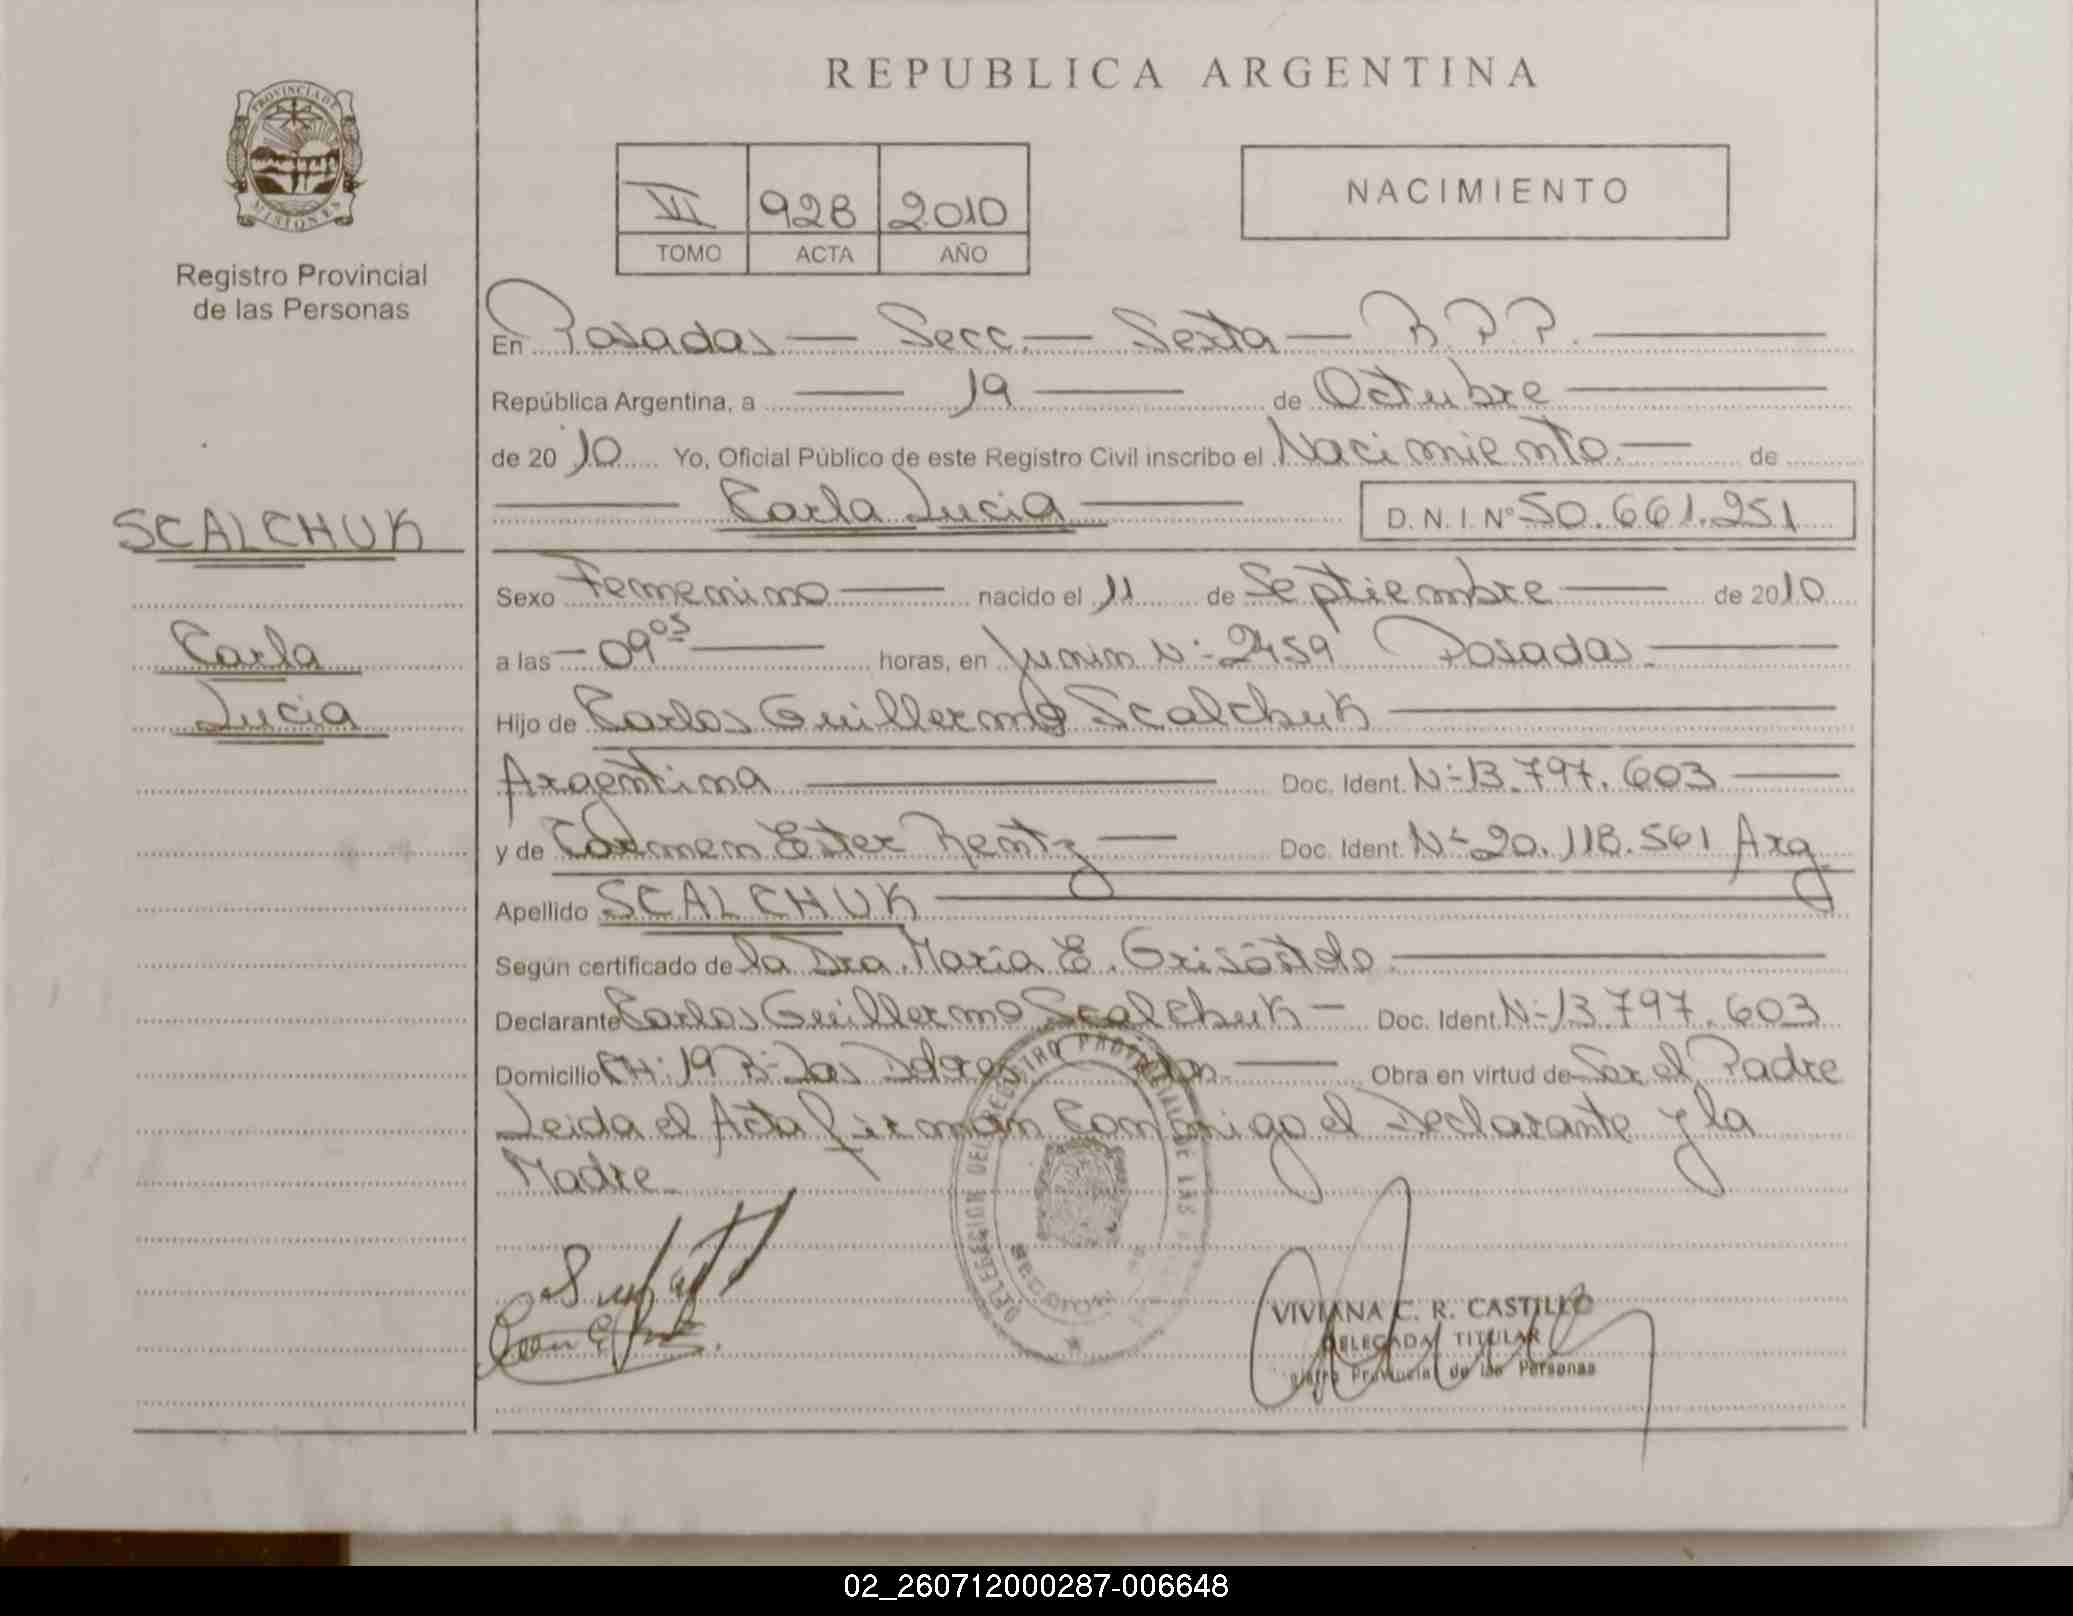 REPUBLICA ARGENTINA
PROVINCIA DE
MISIONES
Registro Provincial
de las Personas
VII 928 2010
TOMO ACTA AÑO
NACIMIENTO
En Posadas — Secc. — Sexta — R.P.P.
República Argentina, a 19 de Octubre
de 20 10 Yo, Oficial Público de este Registro Civil inscribo el Nacimiento de
Carla Lucia D. N. I. Nº 50.661.251
SCALCHUK
Carla
Lucia
Sexo Femenino nacido el 11 de Septiembre de 2010
a las 09 05 horas, en Junin Nº 2459 Posadas.
Hijo de Carlos Guillermo Scalchuk
Argentina Doc. Ident. Nº 13.797.603
y de Carmen Ester Rentz Doc. Ident. Nº 20.118.561 Arg.
Apellido SCALCHUK
Según certificado de la Dra. María E.
Declarante Carlos Guillermo Scalchuk Doc. Ident. Nº 13.797.603
Domicilio CH: 19 Bº Las Dolores Obra en virtud de Ser el Padre
Leida el Acta firman Conmigo el Declarante y la
Madre.
DELEGACION DEL REGISTRO PROVINCIAL DE LAS
VIVIANA C. R. CASTILLO
DELEGADA TITULAR
Provincial de las Personas
02_260712000287-006648